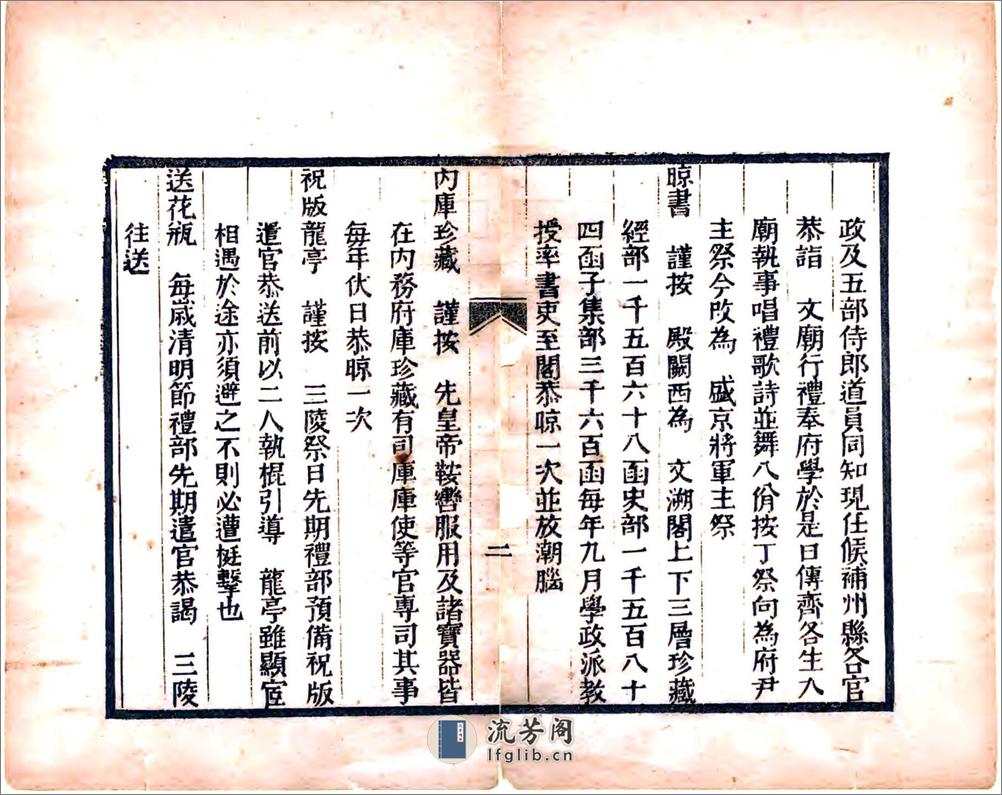 政及五部侍郎道員同知現任候補州縣各官
恭詣　文廟行禮奉府學於是日傳齊各生入
廟執事唱禮歌詩並舞八佾按丁祭向為府尹
主祭今改為　盛京將軍主祭
晾書　謹按　殿闕西為　文溯閣上下三層珍藏
經部一千五百六十八函史部一千五百八十
四函子集部三千六百函每年九月學政派教
授率書吏至閣恭晾一次並放潮腦
二
內庫珍藏　謹按　先皇帝鞍轡服用及諸寶器皆
在內務府庫珍藏有司庫庫使等官專司其事
每年伏日恭晾一次
祝版龍亭　謹按　三陵祭日先期禮部預備祝版
遣官恭送前以二人執棍引導　龍亭雖顯宦
相遇於途亦須避之不則必遭梃擊也
送花瓶　每歲清明節禮部先期遣官恭謁　三陵
往送
流芳阁
lfglib.cn